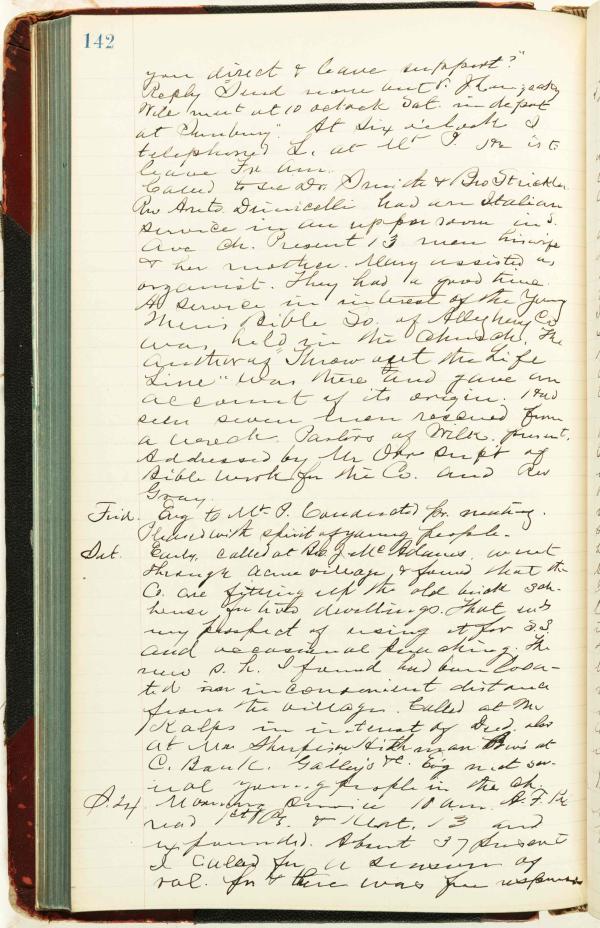 142
you direct & leave support?"
Reply "Send none but P.
Will meet at 10 oclock Sat. in depot
at Sunbury". At six oclock I
telephoned L. at Mt P. He is to
leave Fri am.
Called to see Dr. Smith & Bro Strickler.
Rev Anto. Dunicelli had an Italian
service in an upper room in S.
Ave Ch. Present 13 men his wife
& her mother. Mary assisted as
organist. They had a good time.
A service in interest of the Young
Men's Bible So. of Allegheny Co
was held in the Church. The
author of "Throw out the Life
Line" was there and gave an
account of its origin. Had
seen seven men rescued from
a wreck. Pastors of Wilk. present.
Addressed by Mr Orr Supt of
Bible work for the Co. and Rev
Gray.
Frid. Evg to Mt. P. Conducted pr. meeting.
Pleased with spirit of young people.
Sat. Early called at Bro J. McAdams, went
through Acme village & found that the
Co. are fitting up the old brick sch-
house for two dwellings. That ends
my prospect of using it for S.S.
and occasional preaching. The
new S. h. I found had been loca-
ted in inconvenient distance
from the village. Called at Mr
Kalps in interest of Deed, also
at Mr. at
C. Bank. &c. Evg met sev-
eral young people in the ch.
S. 24 Morning Service 10 am. A. F. Pr
read 1st Ps. & Matt. 13 and
expounded. About 37 present
I called for a season of
vol. for & there was free response